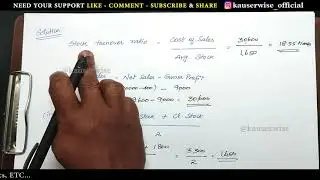 NEED YOUR SUPPORT LIKE - COMMENT - SUBSCRIBE & SHARE @kauserwise_official
Solution:
Stock turnover ratio = Cost of Sales / Avg Stock = 30600 / 1650 = 18.55 times
@kauserwise
Net Sales - Gross Profit
- 9000 = 30600
Stock + Cl Stock
2
+ 1800 = 3300 / 2 = 1650
ETC...